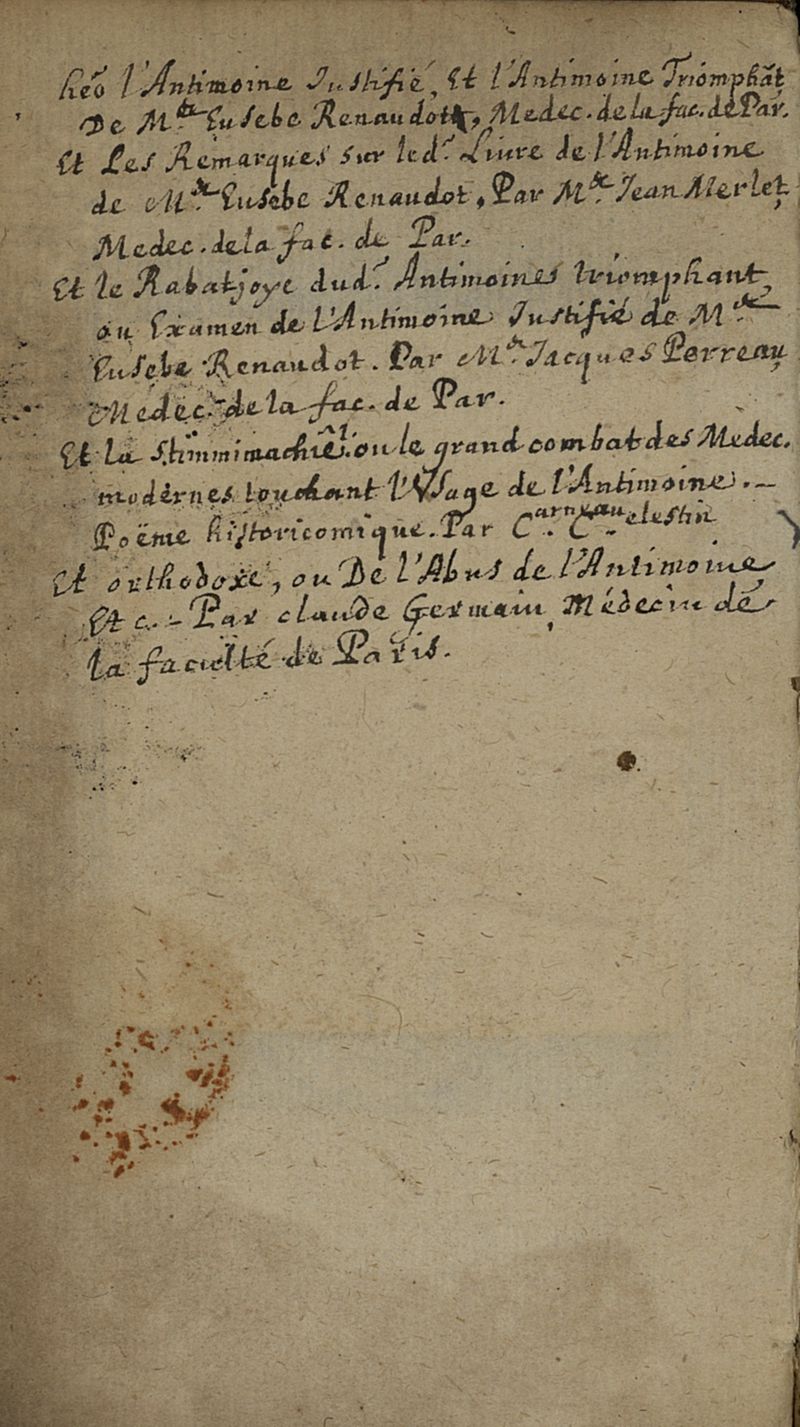 l'Antimoine Justifié, Et l'Antimoine Triomphãt
De Mtre Eusebe Renaudot, Medec. de la fac. de Par.
Et Les Remarques sur led.t Liure de l'Antimoine
de Mtre Eusebe Renaudot, Par Mtre Jean Merlet
Medec. de la fac. de Par.
Et le Rabatjoye dud.t Antimoines triomphant,
ou Examen de l'Antimoine Justifié de Mtre
Eusebe Renaudot. Par Mtre Jacques Perreau
Medec. de la fac. de Par.
Et La Stimmimachie. ou le grand combat des Medec.
modernes touchant l'Vsage de l'Antimoine. -
Poëme historicomique. Par
Et orthodoxe, ou De l'Abus de l'Antimoine
Et c. - Par claude Germain, Médecin de
la faculté de Paris.